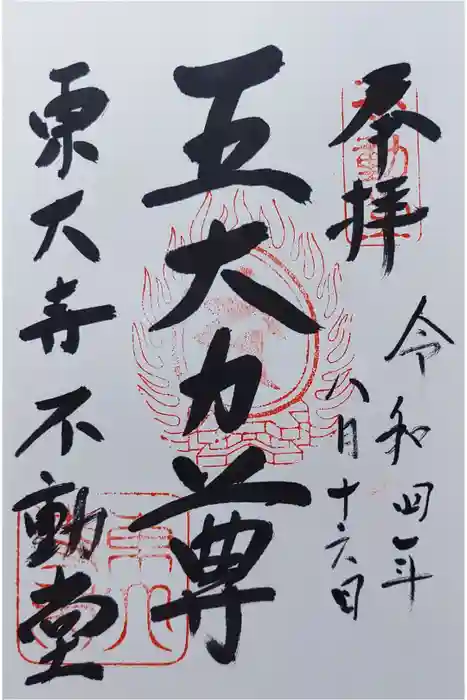 奉拝
令和四年
八月十六日
五大力尊
東大寺不動堂